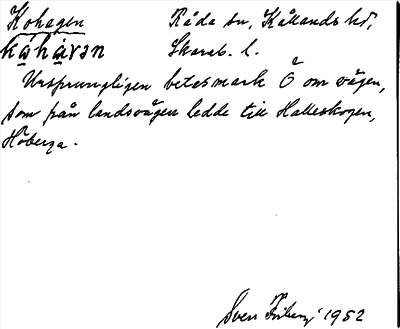 Kohagen Råda sn, Kållands hd,
kåhàvən Skarab. l.
Ursprungligen betesmark Ö om vägen,
som från landsvägen ledde till Halleskogen,
Höberga.
Sven Friberg 1952